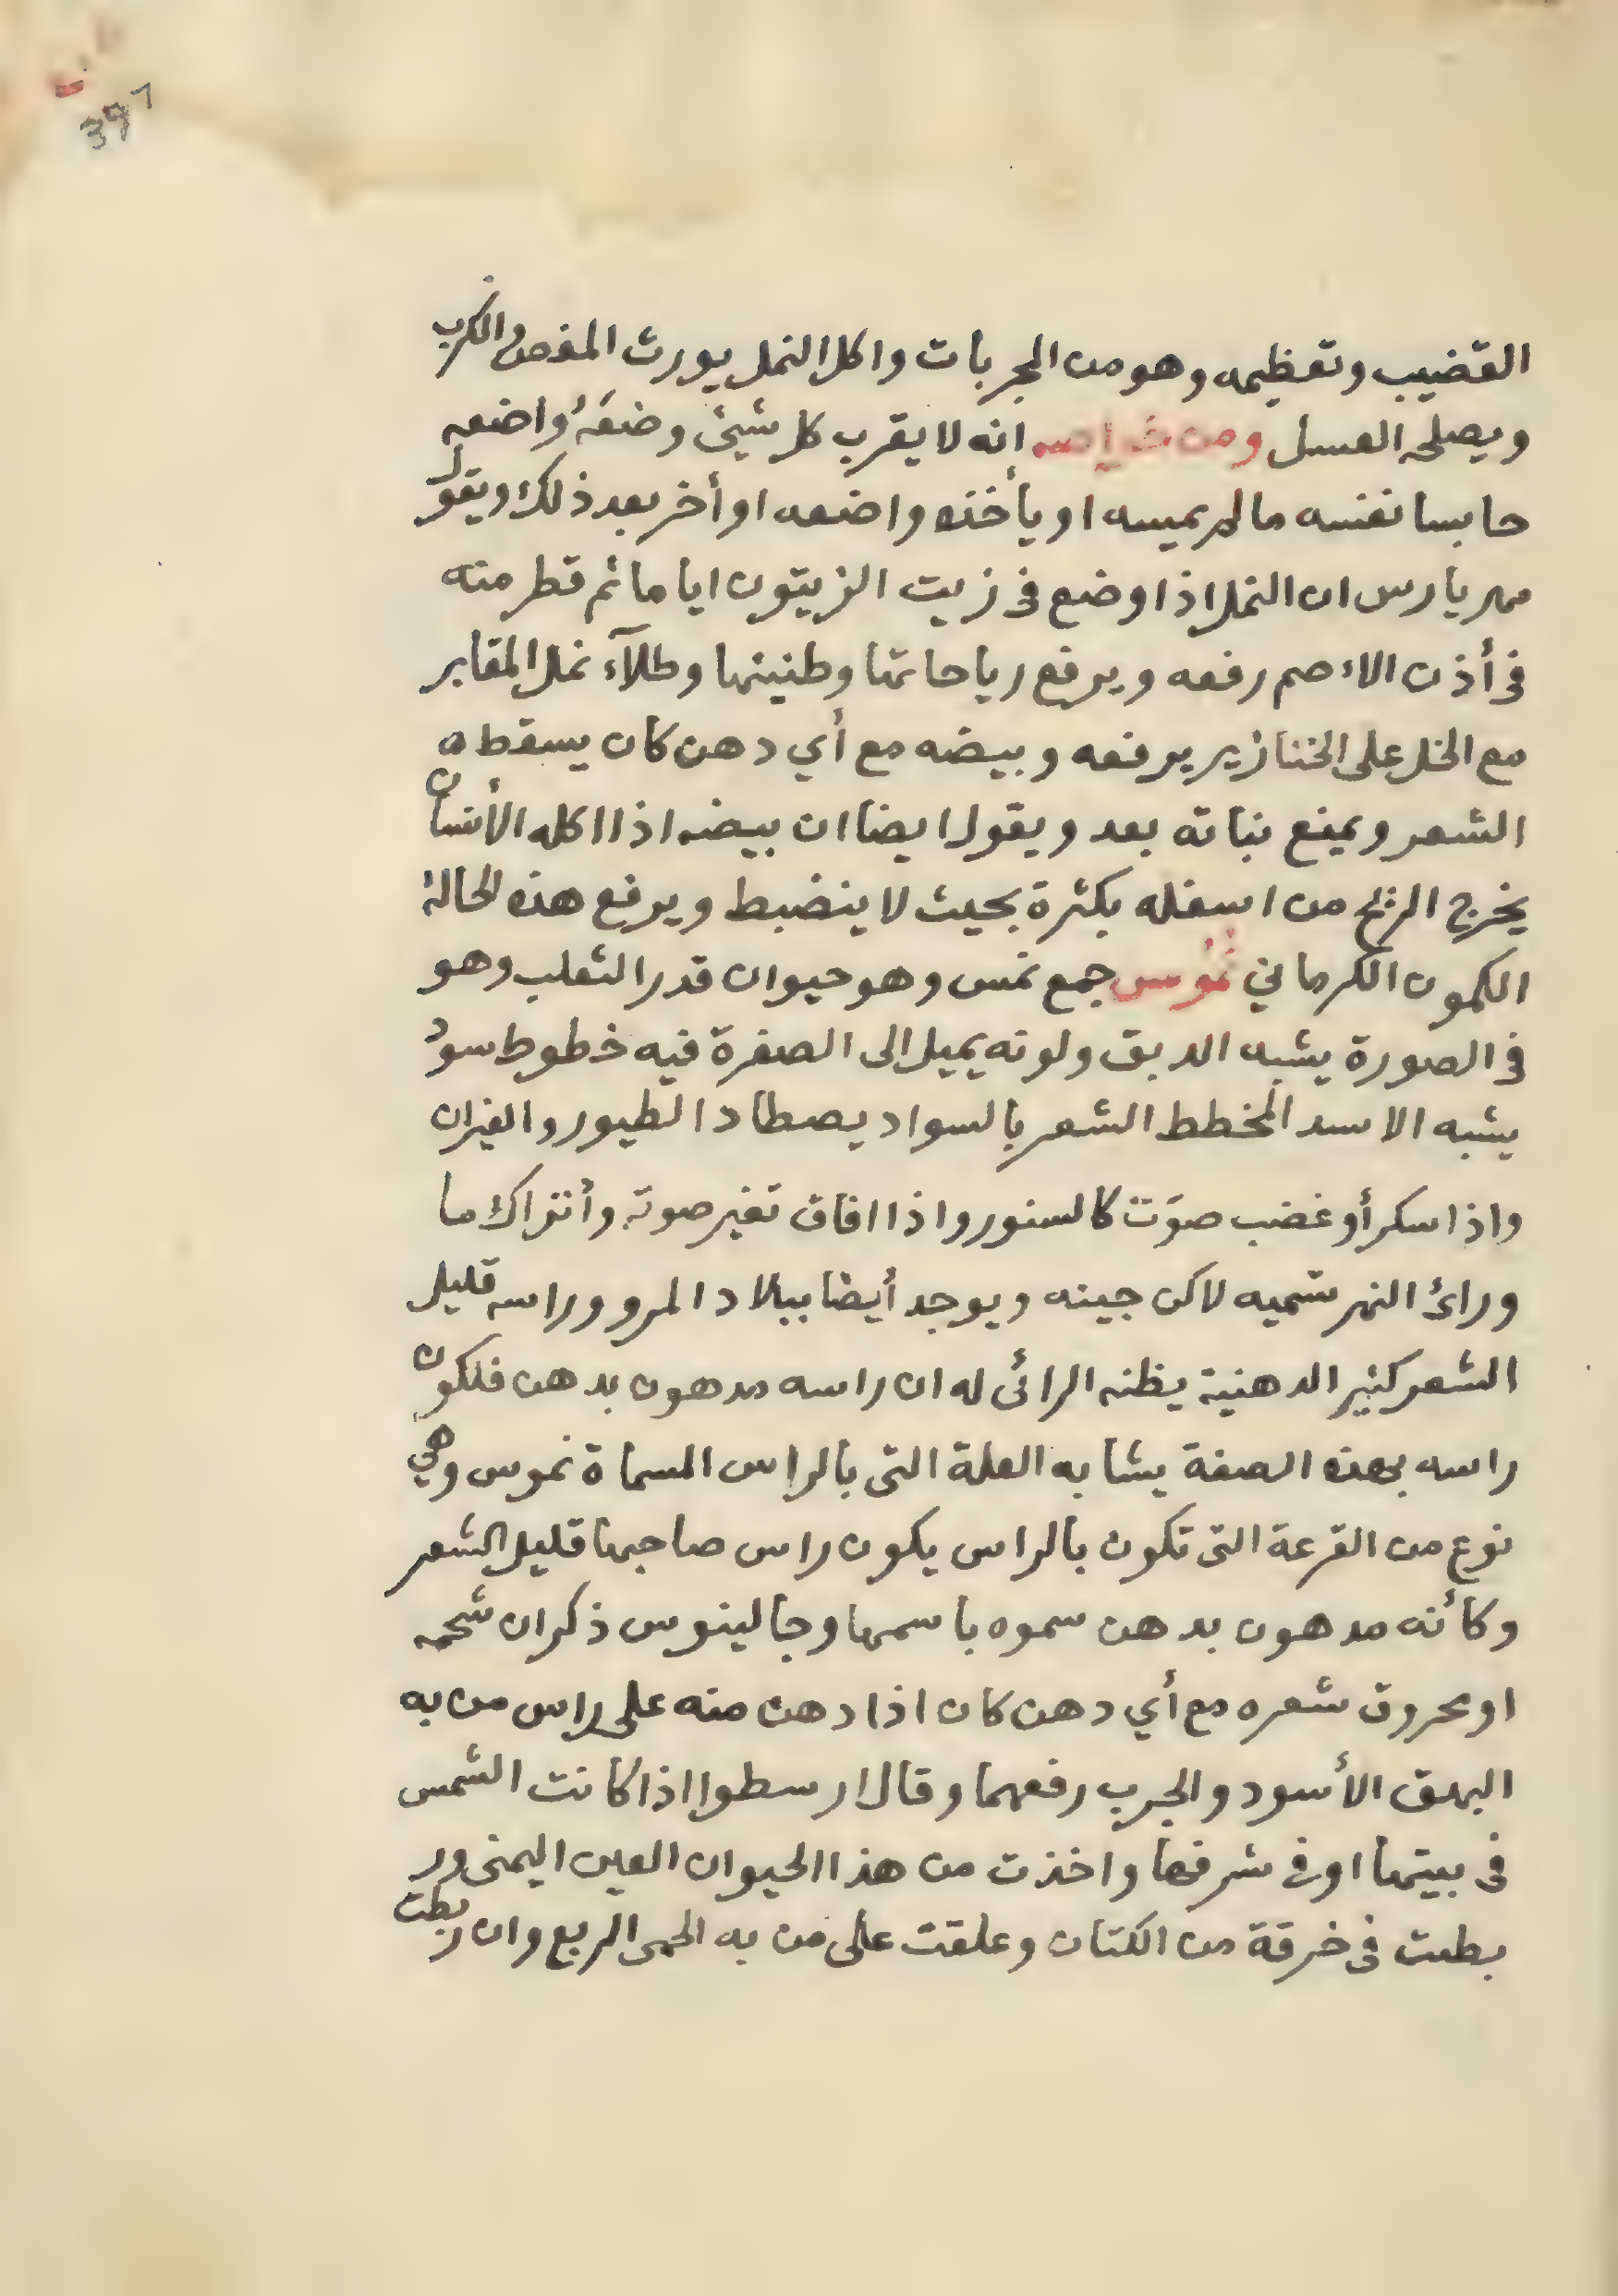 397
القضيب وتعظيمه وهو من المجربات واكل النمل يورث المغص والكرب
ويصلحه العسل ومن خواصه انه لا يقرب كل شيئ وضعهُ واضعه
حابسا نفسه مالم يمسه او يأخذه واضعه او أخر بعد ذلك ويقول
مهريارس ان النمل اذا وضع فى زيت الزيتون اياما ثم قطر منه
فى أذن الاءصم رفعه ويرفع رياحاتها وطنينها وطلآء نمل المقابر
مع الخل على الخنازير يرفعه وبيضه مع أي دهن كان يسقط ه
الشعر ويمنع نباته بعد ويقول ايضا ان بيضه اذا اكله الأنسان
يخرج الريح من اسفله بكثرة بحيث لا ينضبط ويرفع هذه لحالة
الكمون الكرماني نموس جمع نمس وهو حيوان قدر الثعلب وهو
فى الصورة يشبه الدبق ولونه يميل الى الصفرة فيه خطوط سود
يشبه الاسد المخطط الشعر بالسواد يصطاد الطيور والفيران
واذا سكر أو غضب صوّت كالسنور واذا افاق تغير صوته وأتراك ما
ورائ النهر تسميه لاكن جينه ويوجد أيضا ببلاد المرو وراسه قليل
الشعر كثير الدهنية يظنه الرائى له ان راسه مدهون بدهن فلكون
راسه بهذه الصفة يشابه العلة التى بالراس المسماة نموس وهي
نوع من القرعة التى تكون بالراس يكون راس صاحبها قليل الشعر
وكأنه مدهون بدهن سموه باسمها وجالينوس ذكر ان شحمه
او محروق شعره مع أي دهن كان اذا دهن منه على راس من به
البهق الأسود والجرب رفعهما وقال ارسطوا اذا كانت الشمس
فى بيتها او فى شرفها واخذت من هذا الحيوان العين اليمنى ور
بطت فى خرقة من الكتان وعلقت على من به الحمى الربع وان ربطت